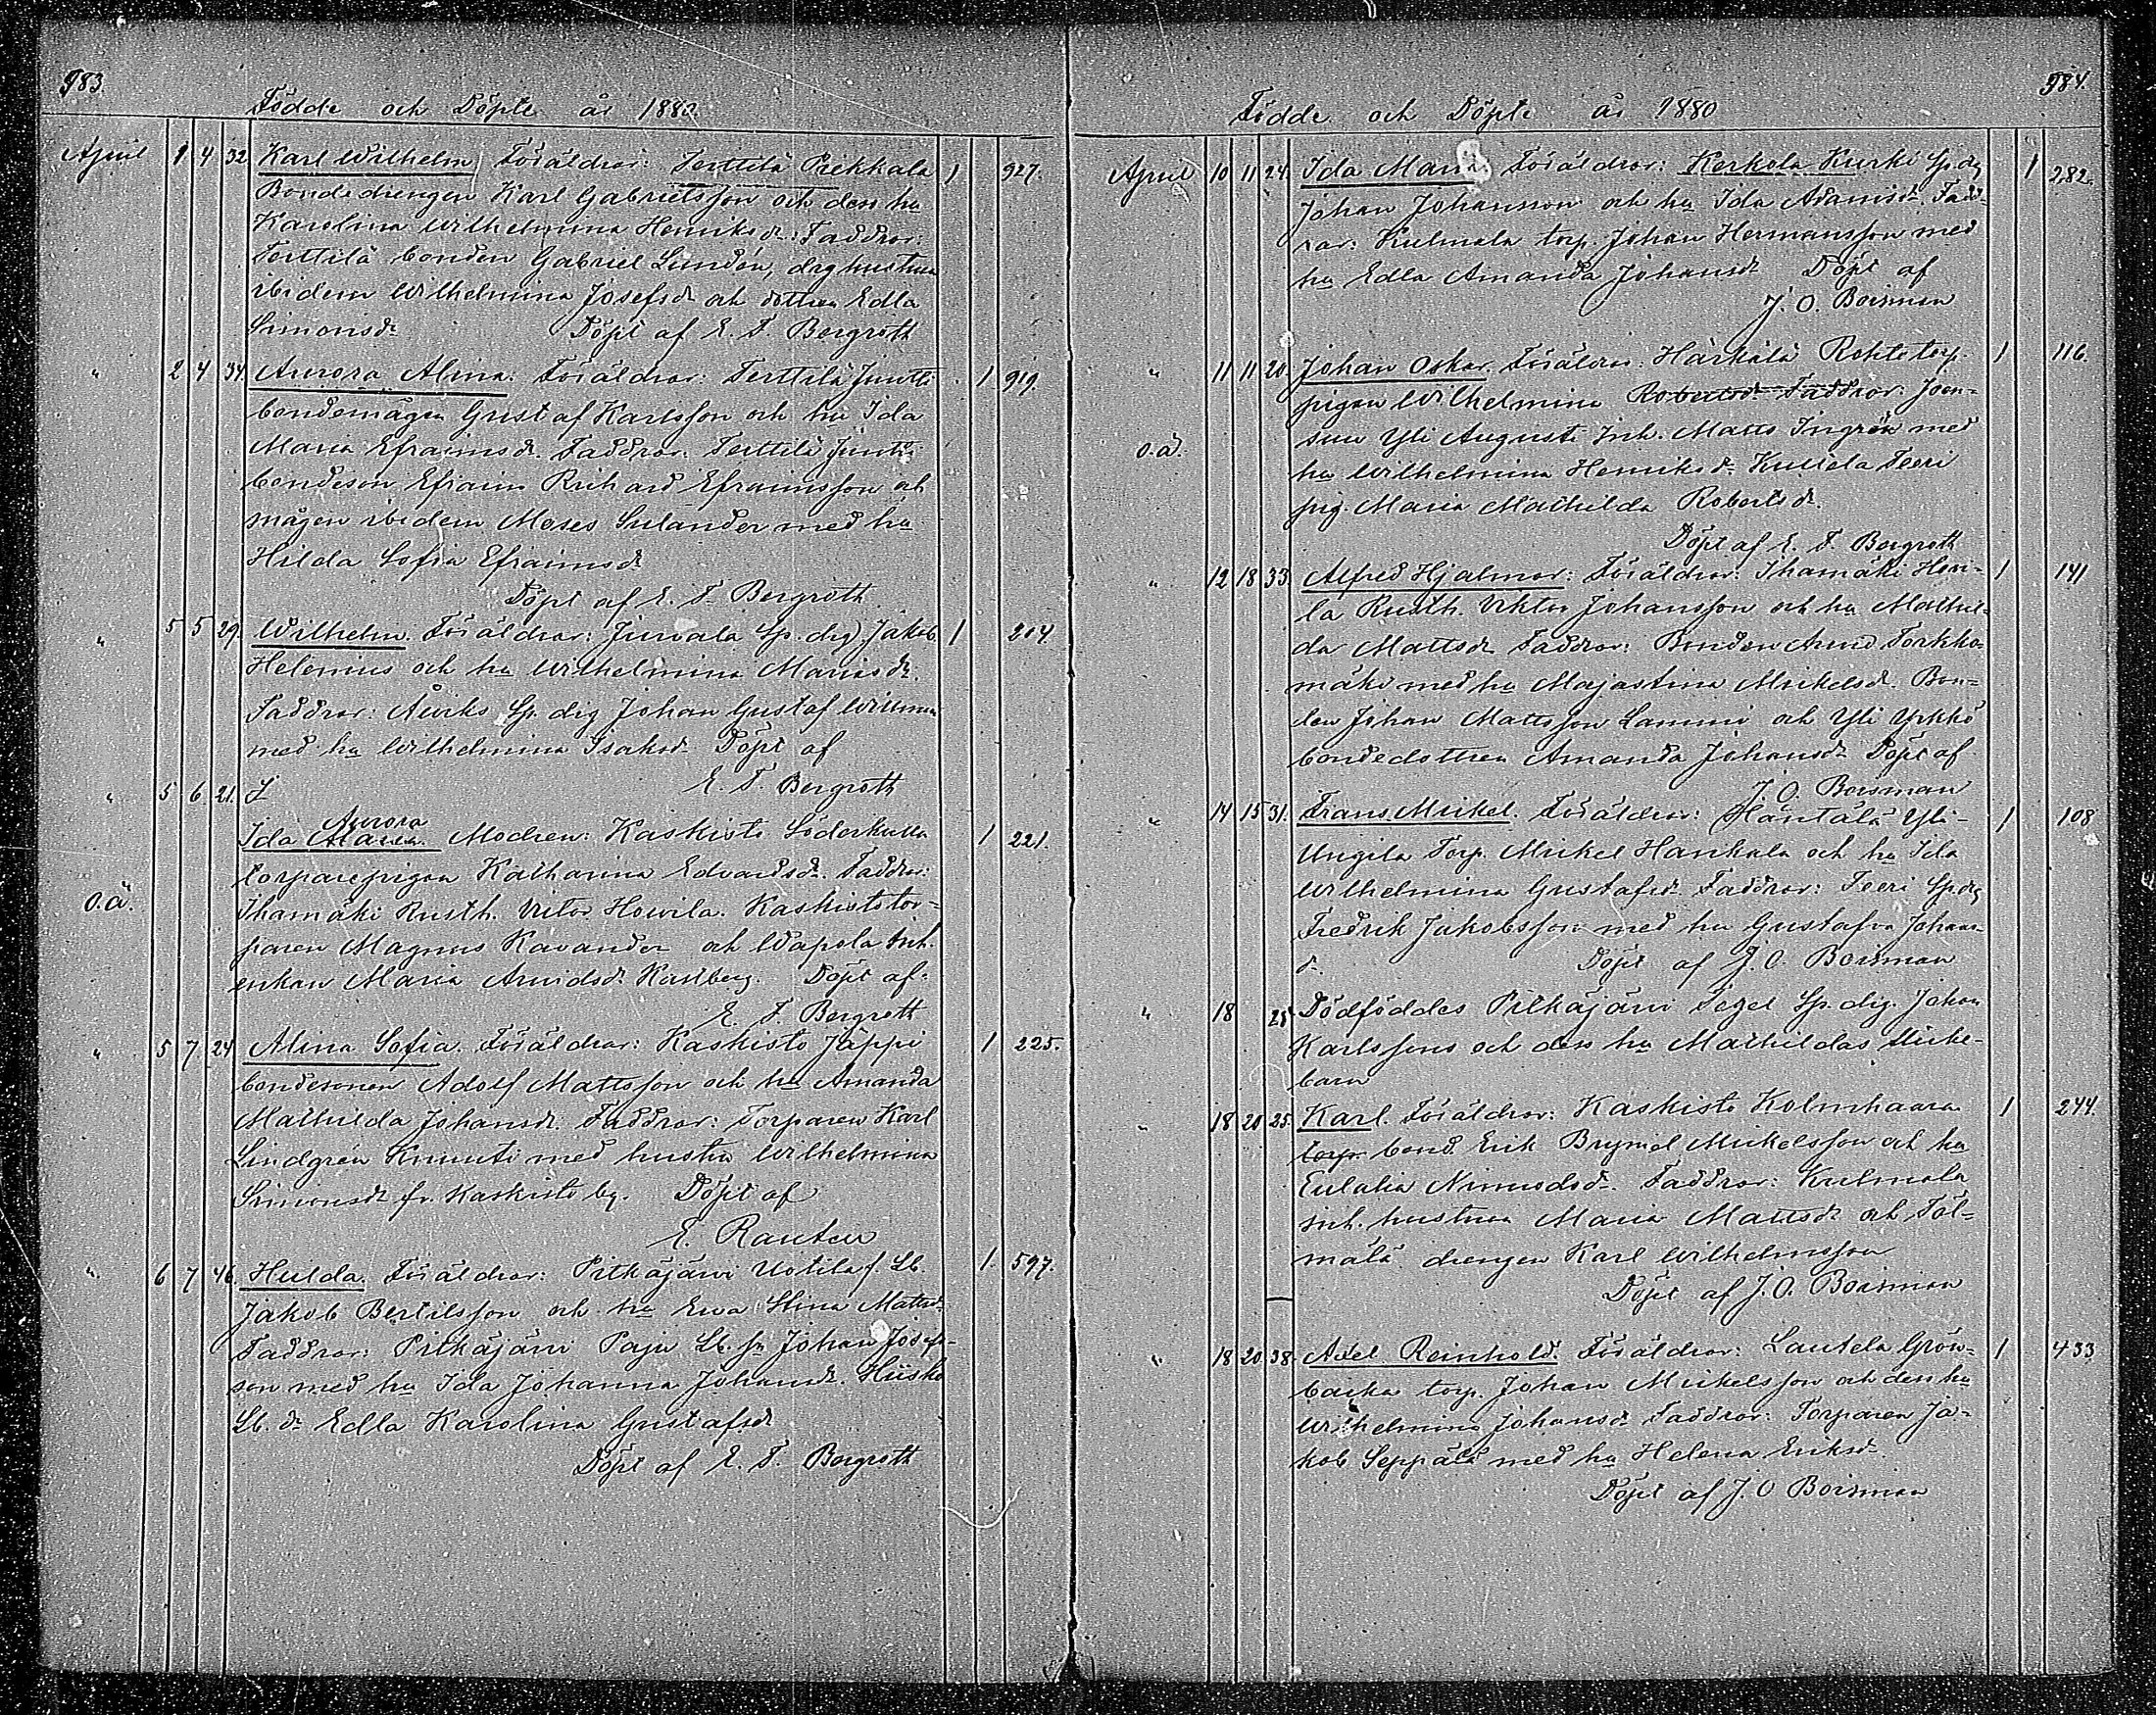 983.
Födde och Döpte år 1880.
April 1 4 32 Karl Wilhelm Föräldrar: Terttilä Pirkkala 1 927.
Bondedrengen Karl Gabrielsson och dess hu
Karolina Wilhelmina Henriksdr. Faddrar:
Terttilä bonden Gabriel Lundén, drg hustrun
ibidem Wilhelmina Josefsdr och dottren Edla
Simonsdr Döpt af E. F. Bergroth
" 2 4 34. Aurora Alina: Föräldrar: Terttilä Juntti 1 919.
bondemågen Gustaf Karlsson och hu Ida
Maria Efraimsdr. Faddrar: Terttilä Juntti
bondeson Efraim Richard Efraimsson och
mågen ibidem Moses Sulander med hu
Hilda Sofia Efraimsdr
Döpt af E. F. Bergroth
" 5 5 29. Wilhelm. Föräldrar: Juvala Sp. drg. Jakob 1 204.
Helenius och hu Wilhelmina Mariasdr.
Faddrar: Sp. drg Johan Gustaf Willman
med hu Wilhelmina Isaksdr Döpt af
E. F. Bergroth
" 5 6. 21.
Aurora
Ida Maria. Modren: Kaskisto Söderkulla 1 221.
torparepigan Katharina Edvardsdr. Faddrar:
O.ä. Ihamäki Rusth. Victor Howila. Kaskisto tor-
paren Magnus Kavander och Wapola Inh.
enkan Maria Arvidsdr Karlberg. Döpt af:
E. F. Bergroth
" 5 7 24 Alina Sofia. Föräldrar: Kaskisto Jäppi 1 225.
bondesonen Adolf Mattsson och hu Amanda
Mathilda Johansdr. Faddrar: Torparen Karl
Lindgrén Knuuti med hustru Wilhelmina
Simonsdr fr. Kaskisto by. Döpt af
E. Rauten
" 6 7 46. Hulda. Föräldrar: Pitkäjärvi Uotila f. Sb. 1. 597.
Jakob Bertilsson och hu Ewa Stina Mattsdr.
Faddrar: Pitkäjärvi Paju Sb. Johan Josefs-
son med hu Ida Johanna Johansdr. Hiisko
Sb. dr Edla Karolina Gustafsdr
Döpt af E. F. Bergroth
984.
Födde och Döpte år 1880
April 10 11 24. Ida Maria Föräldrar: Kerkola Kurki Sp. drg 1 282.
Johan Johansson och hu Ida Adamsdr. Fadd-
rar: Kulmala torp. Johan Hermansson med
hu Edla Amanda Johansdr Döpt af
J. O. Boisman
" 11 11 20 Johan Oskar. Föräldrar: Härkälä Rohto torp. 1 116.
pigan Wilhelmina Robertsdr Faddrar: Joen-
O.ä. suu Yli Augusti Inh. Matts Ingrén med
hu Wilhelmina Henriksdr Kuitila Teeri
pig. Maria Mathilda Robertsdr.
Döpt af E. F. Bergroth
" 12 18 33. Alfred Hjalmar: Föräldrar: Ihamäki Howi- 1 141
la Rusth. Viktor Johansson och hu Mathil-
da Mattsdr Faddrar: Bonden Arvid Torkko-
mäki med hu Majastina Mickelsdr. Bon-
den Johan Mattsson Lammi och Yli Yrkkö
bondedottren Amanda Johansdr Döpt af
J. O. Boisman
" 14 15 31. Frans Mickel. Föräldrar: Häntälä Yli- 1 108
Ungila Torp. Mickel Hankala och hu Ida
Wilhelmina Gustafsdr. Faddrar: Teeri Sp. drg
Fredrik Jakobsson med hu Gustafva Johans-
dr. Döpt af J. O. Boisman
" 18 25 Dödföddes Pitkäjärvi Sp. drg. Johan
Karlssons och dess hu Mathildas flicke-
barn
" 18 20 25. Karl. Föräldrar: Kaskisto Kolmhaara 1 244.
torp. bond. Erik Brymel Mickelsson och hu
Eulalia Nimrodsdr. Faddrar: Kulmala
inh. hustrun Maria Mattsdr och Töl-
mälä drengen Karl Wilhelmsson
Döpt af J. O. Boisman
" 18 20 38. Axel Reinhold. Föräldrar: Lautela Grön- 1 433
backa torp. Johan Mickelsson och dess hu
Wilhelmina Johansdr Faddrar: Torparen Ja-
kob Seppälä med hu Helena Eriksdr.
Döpt af J. O Boisman